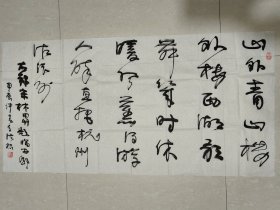 山外青山楼
外楼西湖歌
舞几时休
暖风薰得游
人醉直把杭州
作汴州
宋林昇